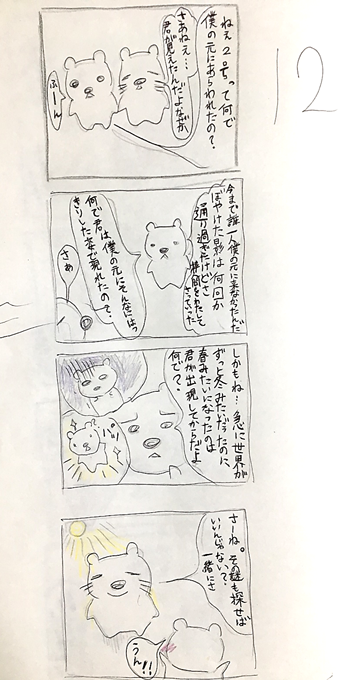 12
ねぇ2号って何で
僕の元にあらわれたの?
さあねぇ…
君が見えたんだよなぜか
ふーん
今まで誰一人僕の元に来なかったんだ
ぼやけた影は何回か
通り過ぎたけどさ
時間をわたして
さっていった
何で君は僕の元にそんなにはっ
きりした姿で現れたの?
さあ
しかもね…急に世界が
ずっと冬みたいだったのに、
春みたいになったのは
君が出現してからだよ
何で?
パッ
さーね。その謎も探せば
いいんじゃない?
一緒にさ
うん!!